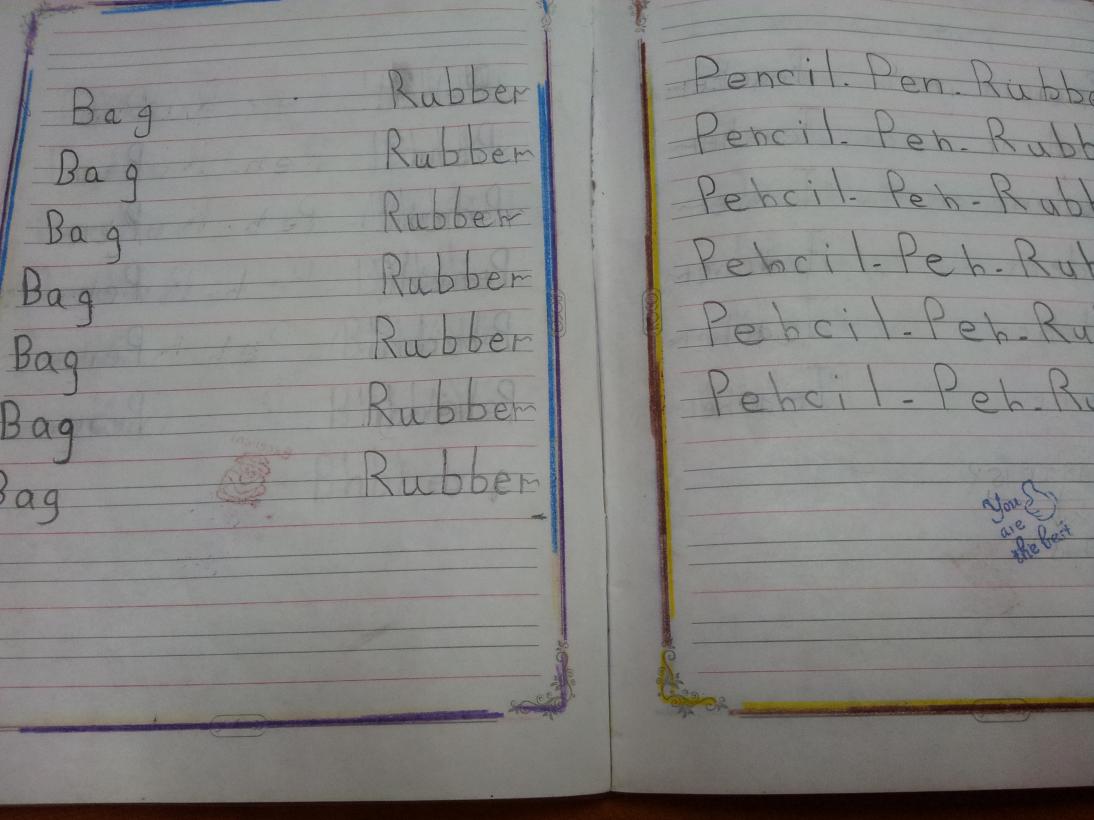 Bag Rubber
Bag Rubber
Bag Rubber
Bag Rubber
Bag Rubber
Bag Rubber
Bag Rubber
Pencil. Pen. Rubbe
Pencil. Pen. Rubb
Pencil. Pen. Rubb
Pencil. Pen. Rub
Pencil. Pen. Ru
Pencil. Pen. Ru
You
are
the best